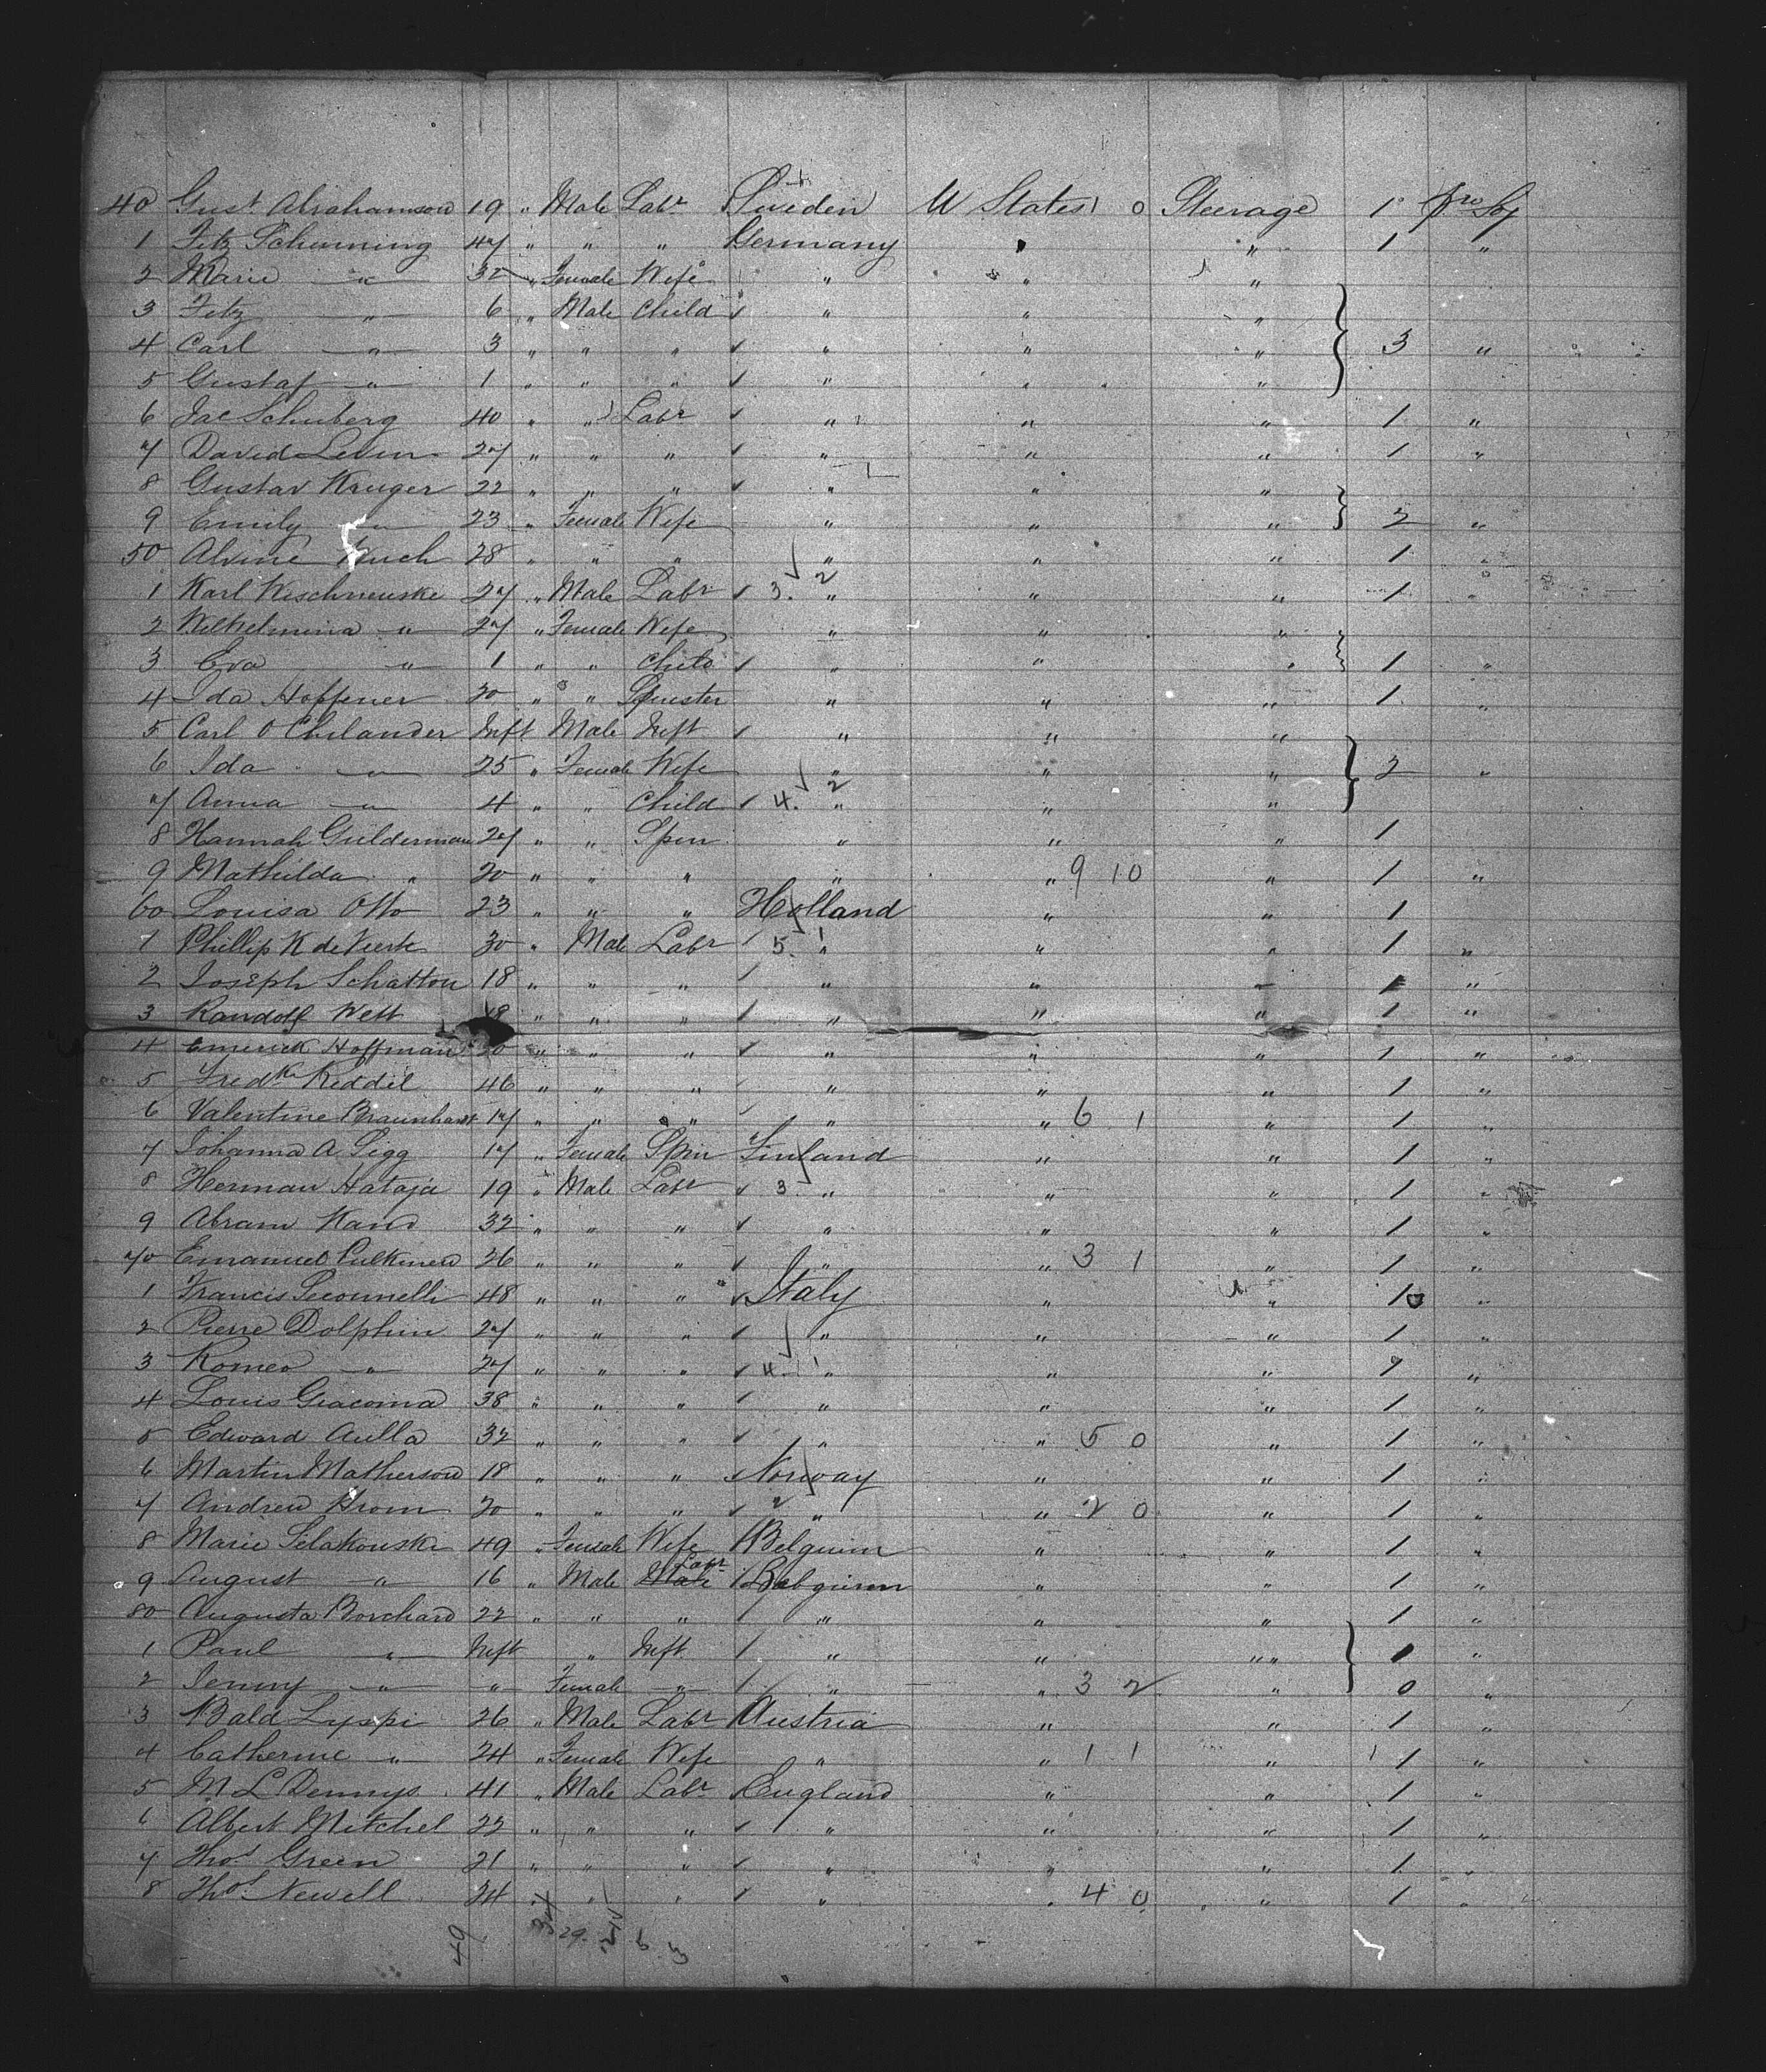 40 Gust Abrahamson 19 " Male Labr Sweden U States 1 0 Steerage 1 pro Soj
1 Fitz Schinning 47 " " " Germany " " 1 "
2 Marie " 32 " Female Wife " " "
3 Fitz " 6 " Male Child " " "
4 Carl " 3 " " " " " " 3 "
5 Gustaf " 1 " " " " " "
6 Jac Schuberg 40 " " Labr " " " 1 "
7 David Levin 27 " " " " " " 1 "
8 Gustav Kruger 22 " " " " " "
9 Emily " 23 " Female Wife " " " 2 "
50 Alvine Kuch 28 " " " " " " 1 "
1 Karl Kischneuske 27 " Male Labr 3. 2 " " " 1 "
2 Wilhelmina " 27 " Female Wife " " "
3 Eva " 1 " " Child " " " 1 "
4 Ida Hoffener 30 " " Spinster " " " 1 "
5 Carl O Chilander Inft Male Inft " " "
6 Ida " 25 " Female Wife " " " 2 "
7 Anna " 4 " " Child 4. 2 " " "
8 Hannah Gulderman 27 " " Spin " " " 1
9 Mathilda " 20 " " " " " 9 10 " 1 "
60 Louisa Otto 23 " " " Holland " " 1
1 Phillip K de Veerte 30 " Male Labr 5. 1 " " " 1 "
2 Joseph Schatton 18 " " " " " " 1 "
3 Randolf Wett 18 " " " " " " 1 "
4 Emerick Hoffman 20 " " " " " " 1 "
5 Fredk Reddil 46 " " " " " " 1 "
6 Valentine Braunhart 17 " " " " " 6 1 " 1 "
7 Johanna A Sigg 17 " Female Spin Finland " " 1 "
8 Herman Hataja 19 " Male Labr 3 " " " 1 "
9 Abram Kand 32 " " " " " " 1 "
70 Emanuel Pulkinen 26 " " " " " 3 1 " 1 "
1 Francis Seconnelli 48 " " " Italy " " 1 "
2 Pierre Dolphin 27 " " " " " " 1 "
3 Romeo " 27 " " " 4. 1 " " " 1 "
4 Louis Giacoma 38 " " " " " " 1 "
5 Edward Aulla 32 " " " " " 5 0 " 1 "
6 Martin Matherson 18 " " " Norway " " 1 "
7 Andrew Hrom 20 " " " 2 " " 2 0 " 1 "
8 Marie Selakouski 49 " Female Wife Belguim " " 1 "
9 August " 16 " Male Labr Belguim " " 1 "
80 Augusta Borchard 22 " " " " " " 1 "
1 Paul " Inft " Inft " " " 1 "
2 Jenny " " Female " " " 3 2 " 0 "
3 Bald Lyspi 26 " Male Labr Austria " " 1 "
4 Catherine " 24 " Female Wife " " 1 1 " 1 "
5 M L Dennys 41 " Male Labr England " " 1 "
6 Albert Mitchel 22 " " " " " " 1 "
7 Thos Green 21 " " " " " " 1 "
8 Thos Newell 24 " " " " " 4 0 " 1 "
49 34 29